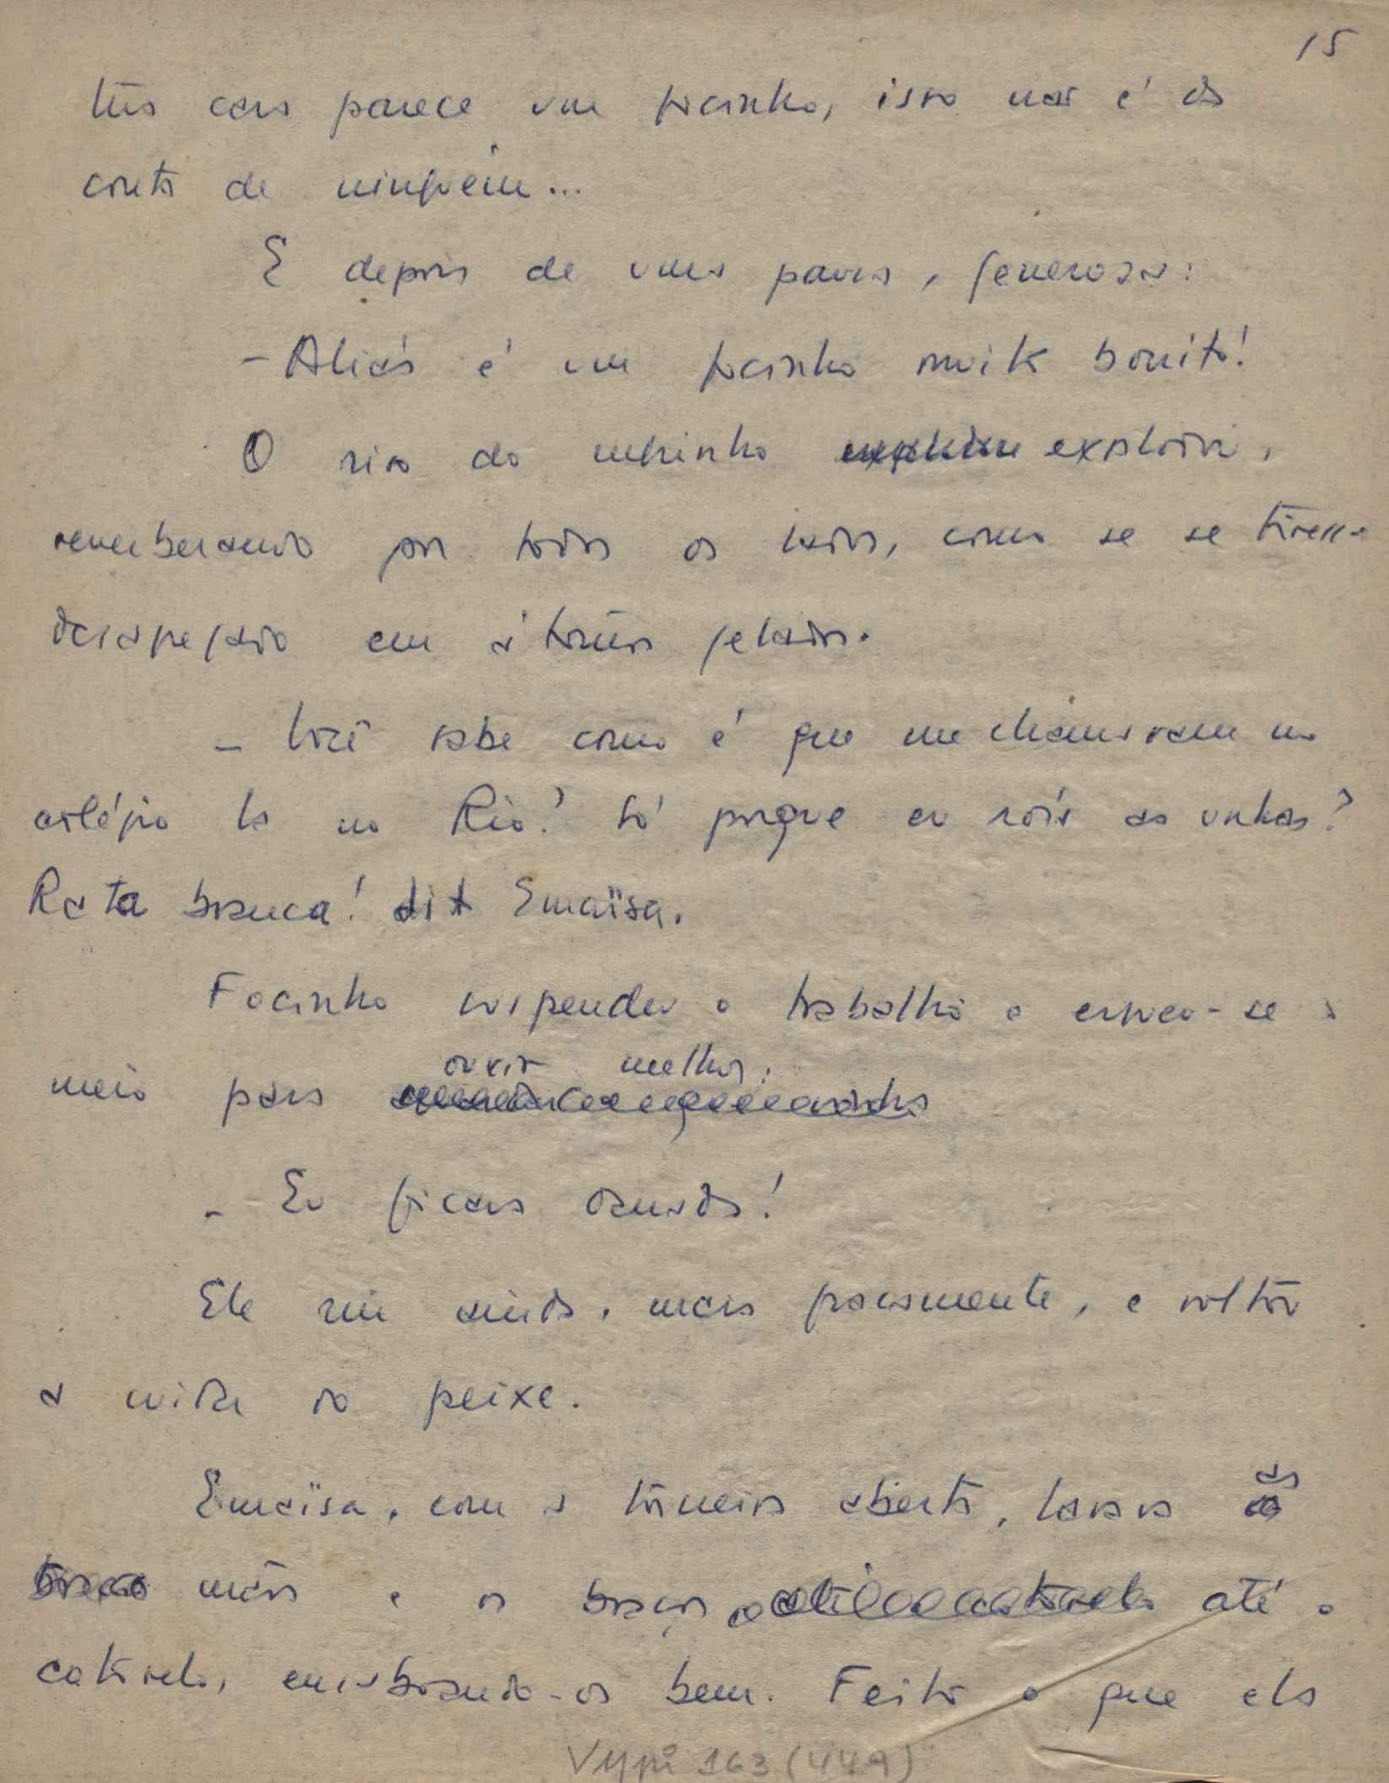 15
tua cara parece um focinho, isso não é da
conta de ninguém...
E depois de uma pausa, generosa:
- Aliás é um focinho muito bonito!
O riso do explodiu,
reverberando por todos os lados, como se se tivesse
desagregado em átomos gelados.
- Você sabe como é que me chamavam no
colégio lá no Rio? Só porque eu roía as unhas?
Rata branca! dit Emaïsa.
Focinho suspendeu o trabalho e ergueu-se a
meio para ouvir melhor:
- Eu ficava danada!
Ele riu ainda, mais fracamente, e voltou
a cuidar do peixe.
Emaïsa, com a torneira aberta, lavava as
mãos e os braços até o
cotovelo, ensaboando-os bem. Feito o que ela
163 (449)